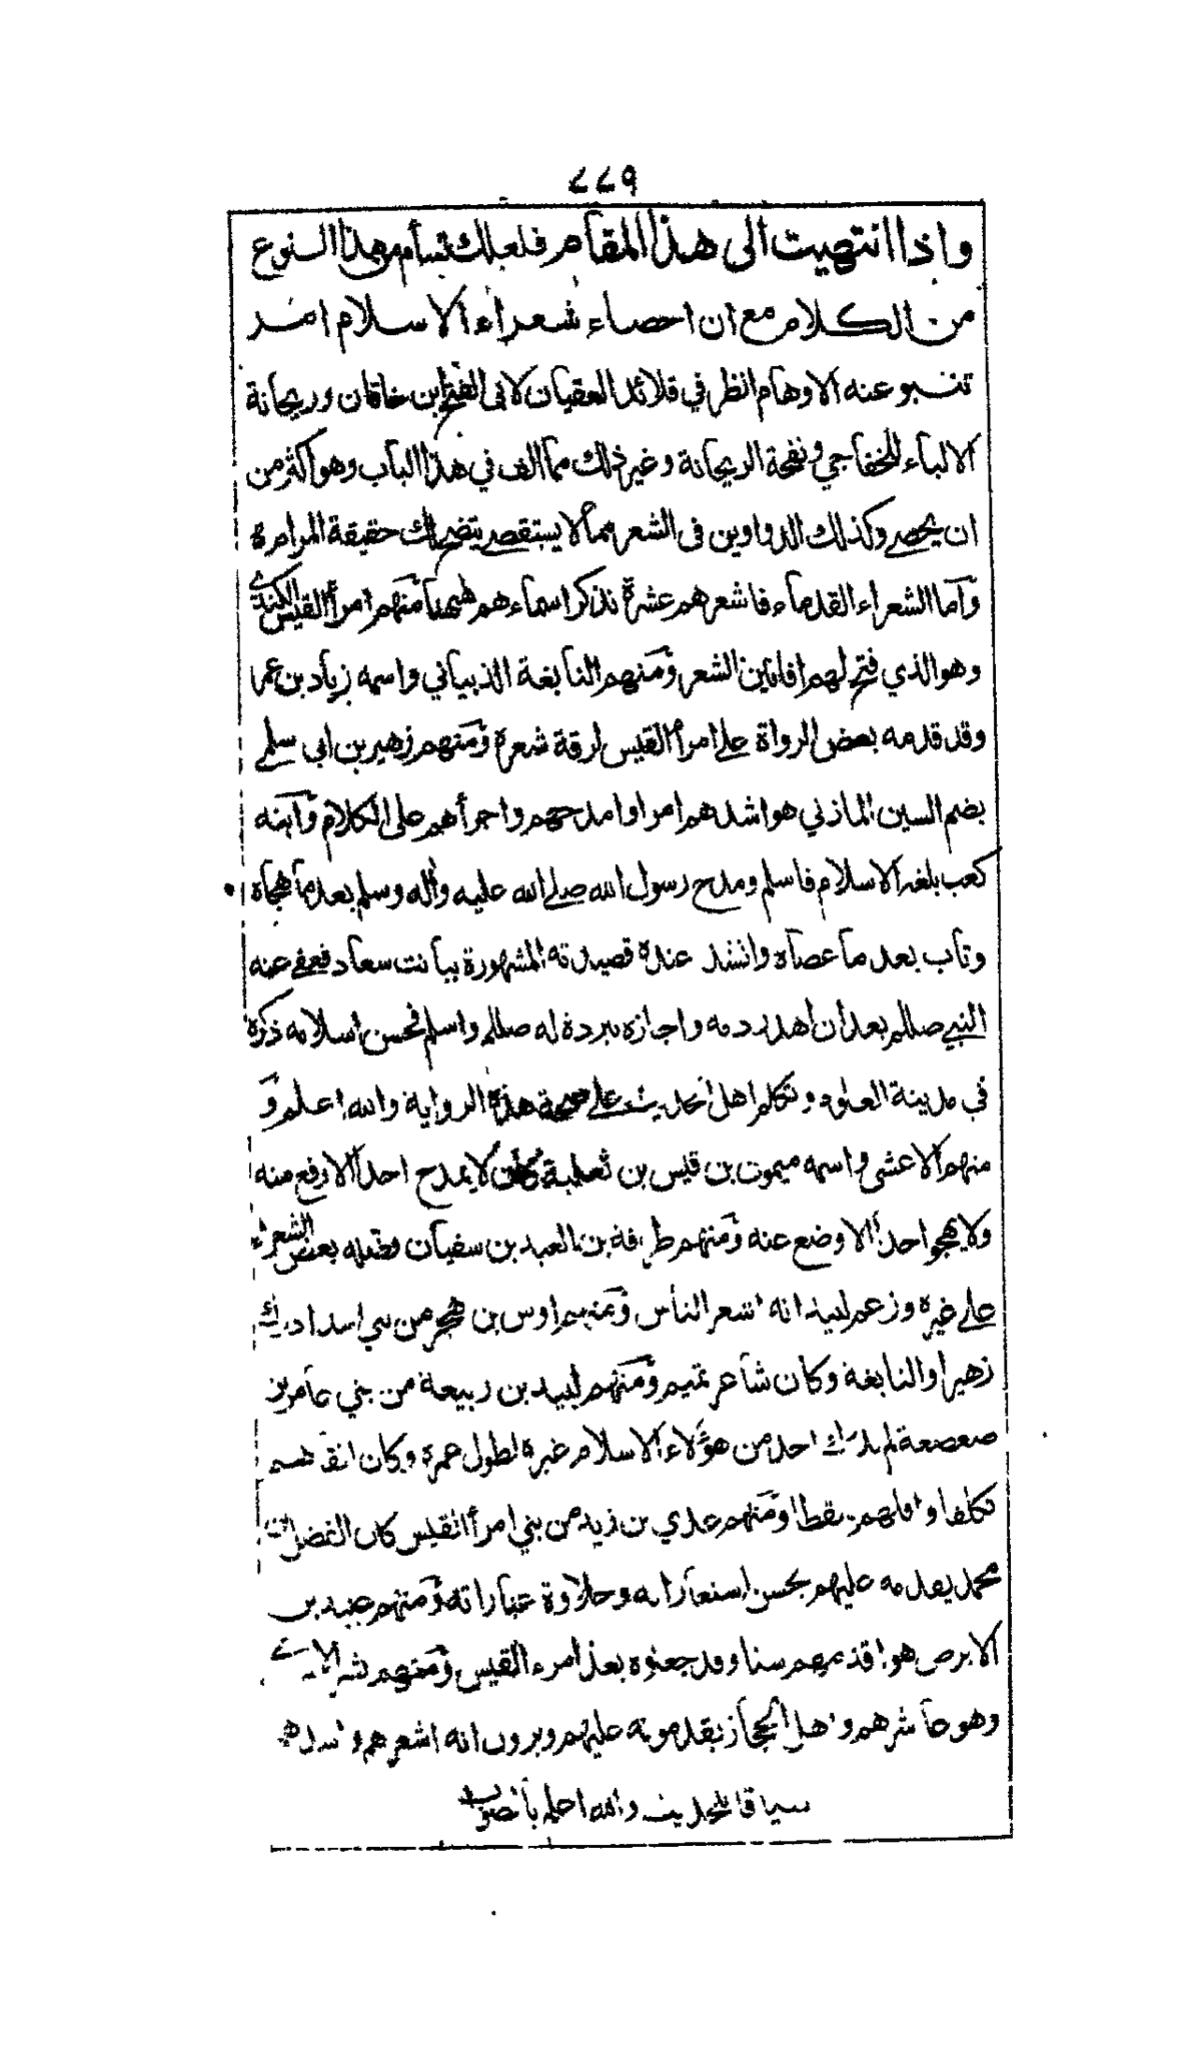 ٢٢٩
واذا انتهيت الى هذا المقام فلعلك تسأم من هذا النوع
من الكلام مع ان احصاء شعراء الاسلام امر
تنبو عنه الاوهام انظر في قلائد العقيان لابى الفتح ابن خاقان وريحانة
الالباء للخفاجي ونفحة الريحانة وغير ذلك مما الف في هذا الباب وهو اكثر من
ان يحصے وكذلك الدواوين فى الشعر مما لا يستقصے يتضح لك حقيقة المرامرة
واما الشعراء القدماء فاشعرهم عشرة نذكر اسماءهم ههنا منهم امرأ القيس الكندے
وهو الذي فتح لهم افانين الشعر ومنهم النابغة الذبياني واسمه زياد بن عمرا
وقد قدمه بعض الرواة علے امرأ القيس لرقة شعره ومنهم زهير بن ابى سلمے
بضم السين المازني هو اشدهم امرا وامدحهم واجرأهم على الكلام وابنه
كعب بلغه الاسلام فاسلم ومدح رسول الله صلے الله عليه واله وسلم بعد ما هجاه
وتاب بعد ما عصاه وانشد عنده قصيدته المشهورة ببانت سعاد فعفى عنه
النبے صللم بعد ان اهدر دمه واجازه ببردة له صللم واسلم فحسن اسلامه ذكره
في مدينة العلوم وتكلم اهل الحديث علے صحة هذه الرواية والله اعلم و
منهم الاعشى واسمه ميمون بن قيس بن ثعلبة كان لا يمدح احدا الا رفع منه
ولا يهجو احدا الا وضع عنه ومنهم طرفة بن العبد بن سفيان فضله بعض الشعراء
علے غيره وزعم لبيد انه اشعر الناس ومنهم اوس بن حجر من بني اسد ادرك
زهيرا والنابغة وكان شاعر تميم ومنهم لبيد بن ربيعة من بني عامر بن
صعصعة لم يدرك احد من هؤلاء الاسلام غيره لطول عمره وكان
تكلفا واقلهم سقطا ومنهم عدي بن زيد من بني امرأ القيس كان الفضل بن
محمد يقدمه عليهم بحسن استعاراته وحلاوة عباراته ومنهم عبيد بن
الابرص هو اقدمهم سنا وقد جعلوه بعد امرء القيس ومنهم
وهو عاشرهم واهل الحجاز يقدمونه عليهم ويرون انه اشعرهم واسدهم
سياقا للحديث والله اعلم بالصواب